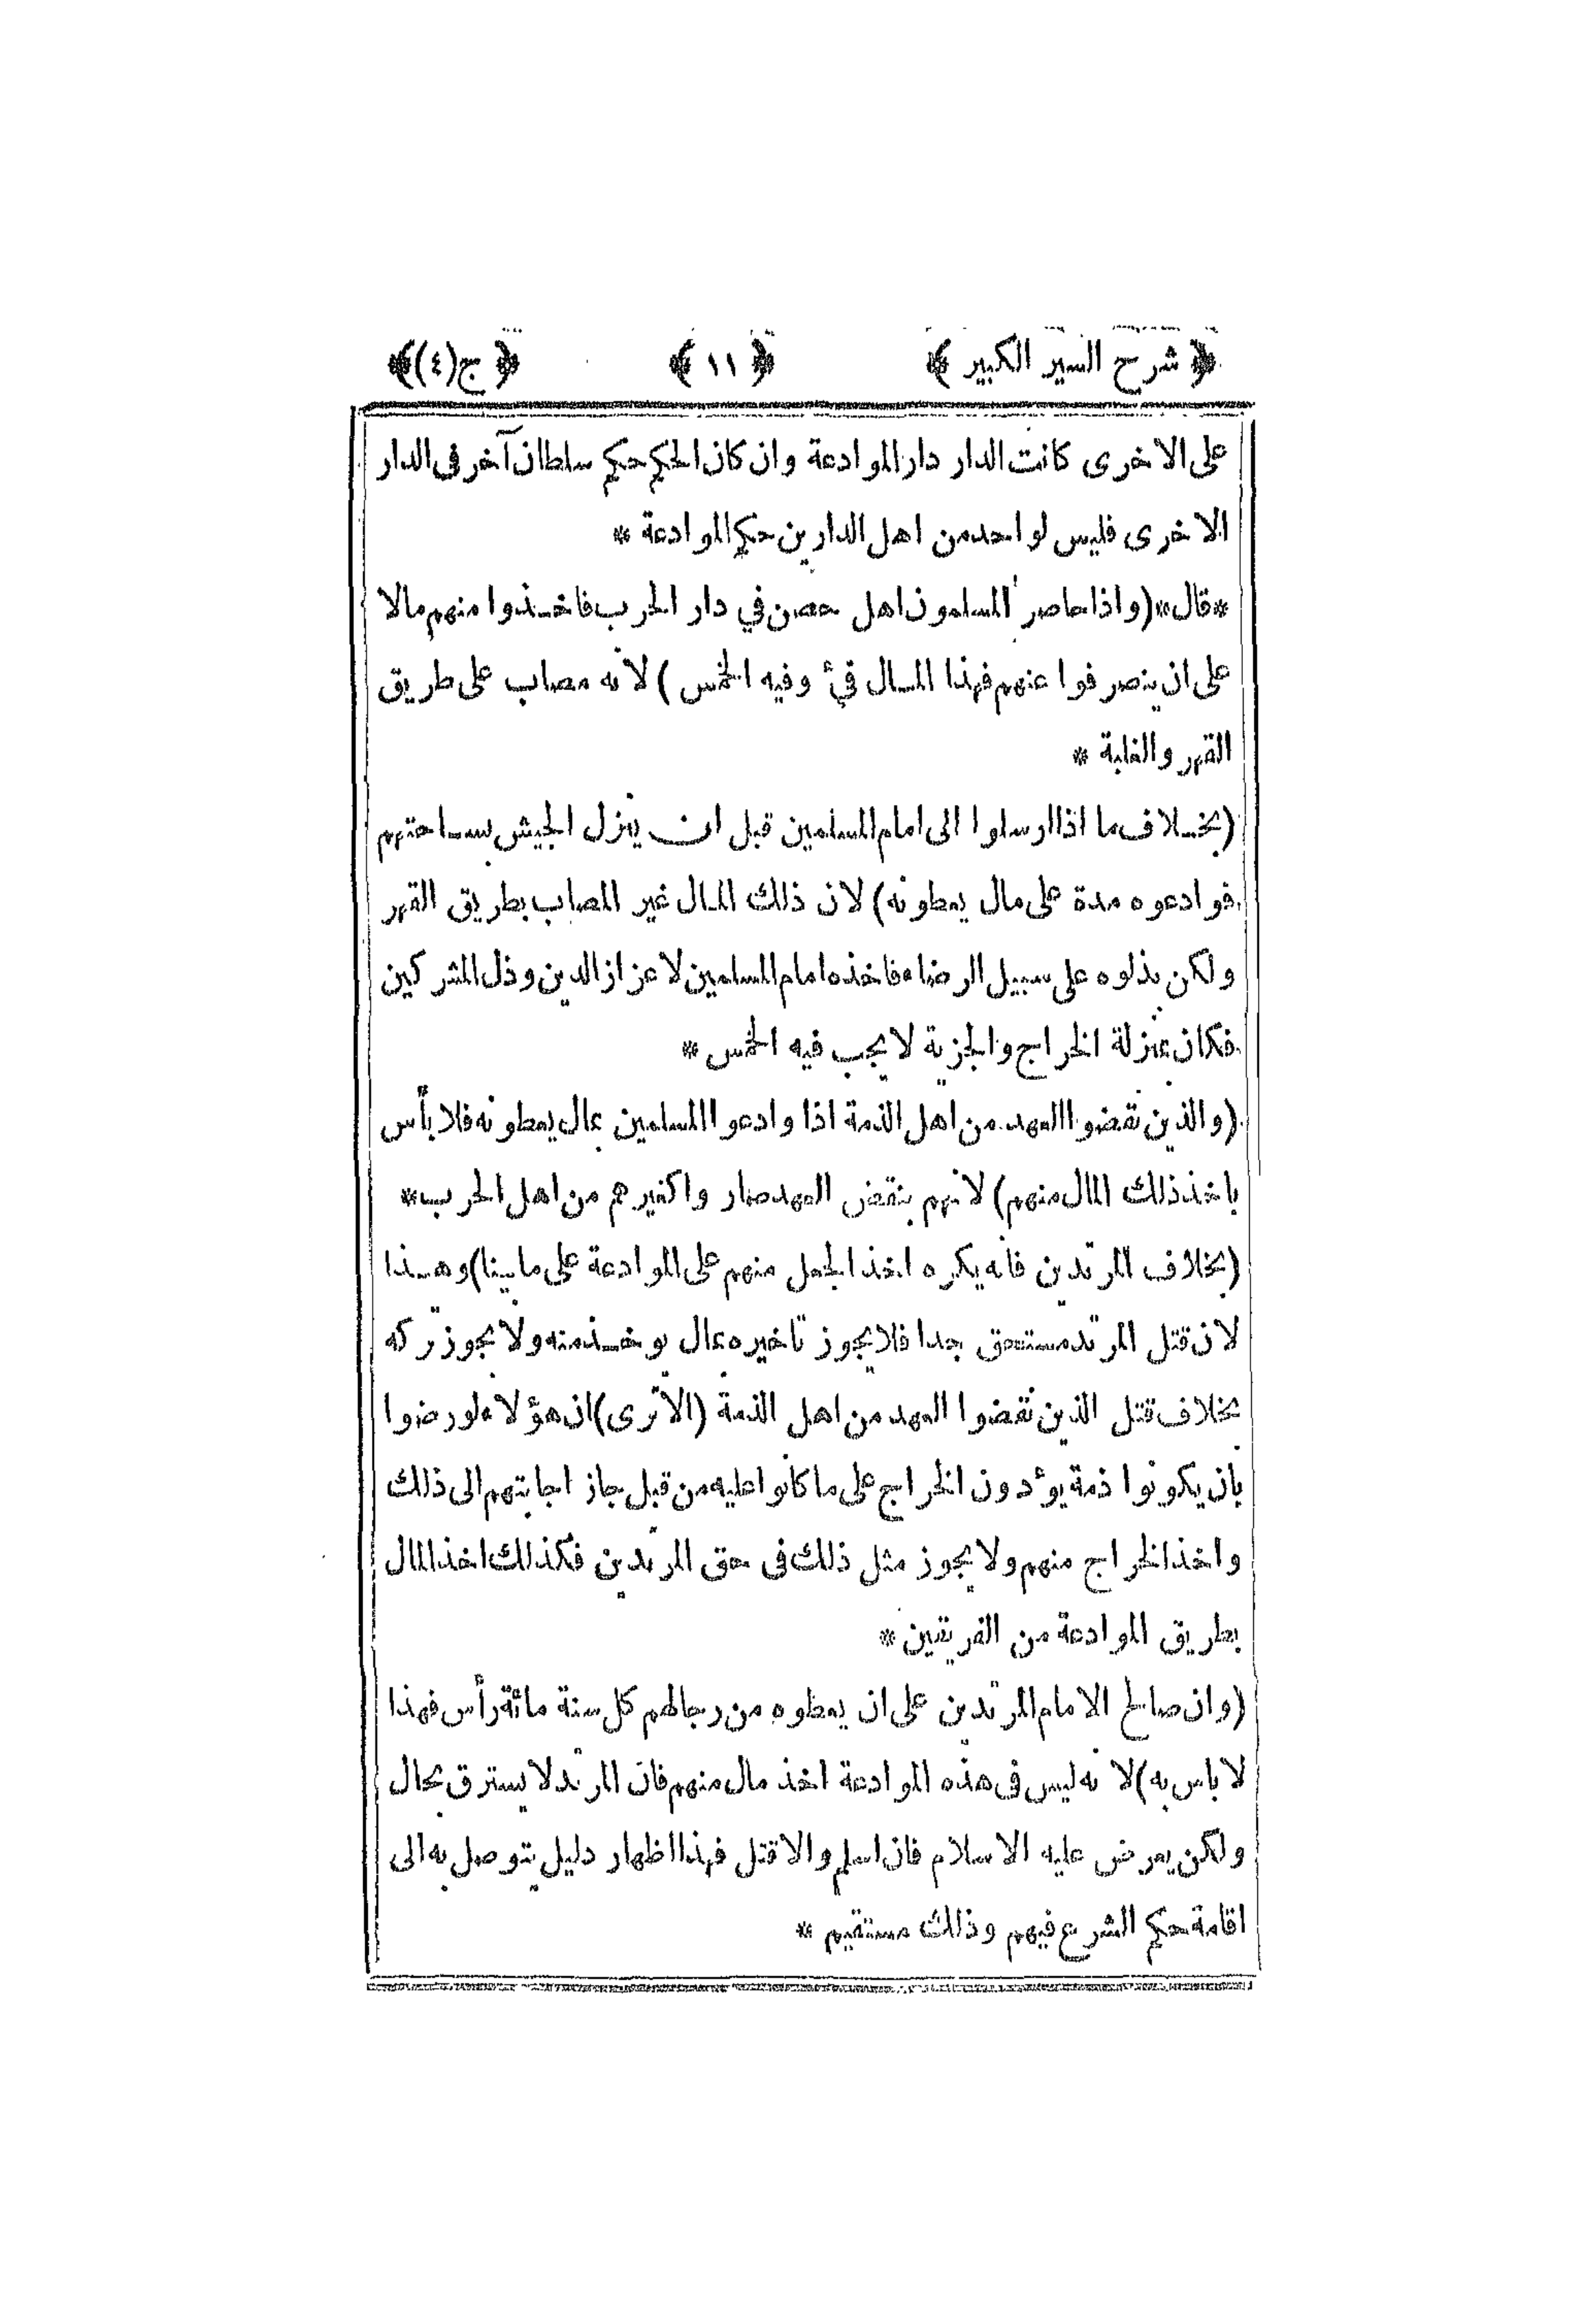 ﴿ شرح السير الكبير ﴾ ﴿ ١١ ﴾ ﴿ ج(٤) ﴾
على الاخرى كانت الدار دار الموادعة وان كان الحكم حكم سلطان آخر فى الدار
الاخرى فليس لواحد من اهل الدارين حكم الموادعة *
*قال* (واذا حاصر المسلمون اهل حصن في دار الحرب فاخذوا منهم مالا
على ان ينصرفوا عنهم فهذا المال فئ وفيه الخمس ) لانه مصاب على طريق
القهر والغلبة *
(بخلاف ما اذا ارسلوا الى امام المسلمين قبل ان ينزل الجيش بساحتهم
فوادعوه مدة على مال يعطونه) لان ذلك المال غير المصاب بطريق القهر
ولكن بذلوه على سبيل الرضاء فاخذه امام المسلمين لاعزاز الدين وذل المشركين
فكان بمنزلة الخراج والجزية لا يجب فيه الخمس *
(والذين نقضوا العهد من اهل الذمة اذا وادعوا المسلمين بمال يعطونه فلا بأس
باخذ ذلك المال منهم) لانهم بنقض العهد صاروا كغيرهم من اهل الحرب *
(بخلاف المرتدين فانه يكره اخذ الجعل منهم على الموادعة على ما بينا) وهذا
لان قتل المرتد مستحق جدا فلا يجوز تاخيره بمال يوخذ منه ولا يجوز تركه
بخلاف قتل الذين نقضوا العهد من اهل الذمة (الا ترى) ان هؤلاء لو رضوا
بان يكونوا ذمة يؤدون الخراج على ما كانوا عليه من قبل جاز اجابتهم الى ذلك
واخذ الخراج منهم ولا يجوز مثل ذلك فى حق المرتدين فكذلك اخذ المال
بطريق الموادعة من الفريقين *
(وان صالح الامام المرتدين على ان يعطوه من رجالهم كل سنة مائة رأس فهذا
لا باس به) لانه ليس فى هذه الموادعة اخذ مال منهم فان المرتد لا يسترق بحال
ولكن يعرض عليه الاسلام فان اسلم والا قتل فهذا اظهار دليل يتوصل به الى
اقامة حكم الشرع فيهم وذلك مستقيم *